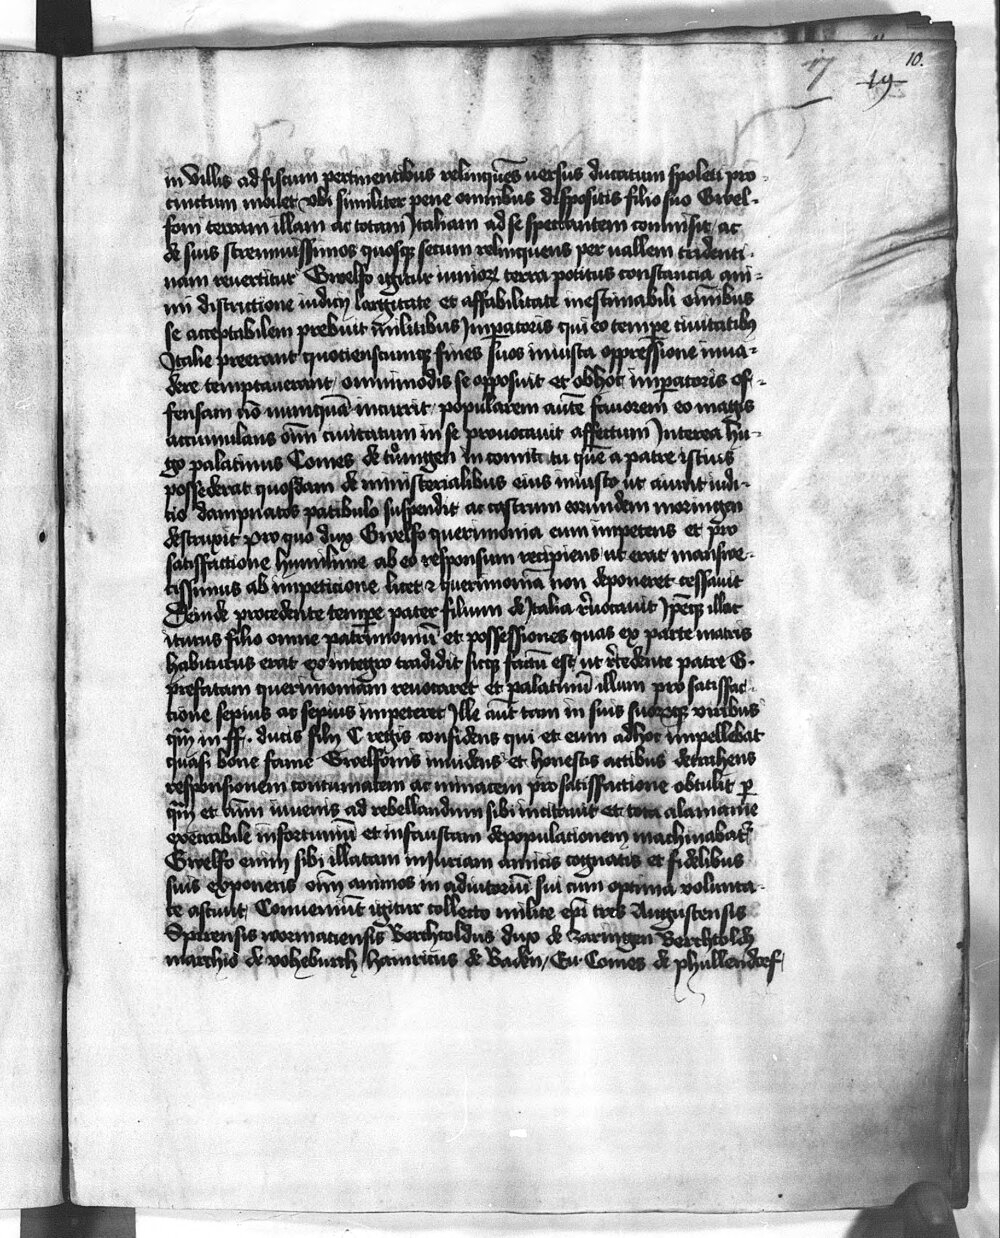 10.
17 19
in villis ad fiscum pertinentibus relinque͞s versus ducatum spoleti pro-
cinctum mouet vbi similiter pene omnibus dispositis filio suo Gwel-
foni terram illam ac totam Jtaliam ad se spectantem commisit ac
de suis strennuissimos quosqꝫ secum relinquens per vallem tridenti-
nam reuertitur Gwelfo igitur iunior terra potitus constancia ani-
mi districtione iudicij largitate et affabilitate inestimabili o͞mibus
se acceptabilem prebuit militibus Jmꝑatoris qui eo tempe ciuitatibꝰ
Jtalie preerant quotienscumqꝫ fines suos iniusta oppressione inua-
dere temptauerant omnimodis se opposuit et ob hoc imꝑatoris of-
fensam no͞ nunqua͞ incurrit popularem aute͞ fauorem eo magis
accumulans o͞m ciuitatum in se prouocauit affectum Jnterea hu-
go palatinus Comes de tuͦingen in comitatu que͞ a patre istius
possederat quosdam de ministerialibus eius iniusto ut aiunt iudi-
tio dampnatos patibulo suspendit ac castrum eorundem moringen
destruxit pro quo dux Gwelfo querimonia eum impetens et pro
satisfactione humilime ab eo responsum recipiens ut erat mansue-
tissimus ab impeticione licet ꝛ querimonia͞ non deponeret cessauit
Deinde procedente tempe pater filium de Jtalia reuocauit Jpeqꝫ illac
iturus filio omne patrimoniu͞ et possessiones quas ex parte matris
habiturus erat ex integro tradidit sicqꝫ factu͞ est ut recedente patre G.
prefatam querimoniam reuocaret et palatinu͞ illum pro satisfac-
tione sepius ac sepius impeteret Jlle aut͞ tam in suis suorqꝫ viribus
qm͞ in ff. ducis filij C regis confidens qui et eum adhoc impellebat
quasi bone fame Gwelfonis inuidens et honestis actibus detrahens
responsionem contumacem ac minacem pro satisfactione obtulit ꝑ
qm͞ et a͞im iuuenis ad rebellandum sibi incitauit et tota alamanie
execrabile infortuniu͞ et infaustam depopulationem machinabat͛
Gwelfo enim sibi illatam iniuriam amicis cognatis et fidelibus
suis exponens o͞im animos in adiutoriu͞ sui cum optima volunta-
te asciuit Conueniu͞t igitur collecto milite epi͞ tres Augustensis
Spirensis wormaciensis Berchtoldus dux de zaringen Berchtold͛
marchio de voheburch hainricus de Baden / Eu. Comes de phullendorf